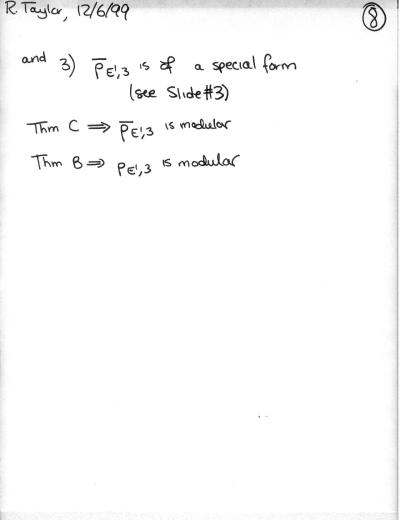 R. Taylor, 12/6/99
⑧
and 3) ρ̄_{E',3} is of a special form
(see Slide #3)
Thm C ⟹ ρ̄_{E',3} is modular
Thm B ⟹ ρ_{E',3} is modular